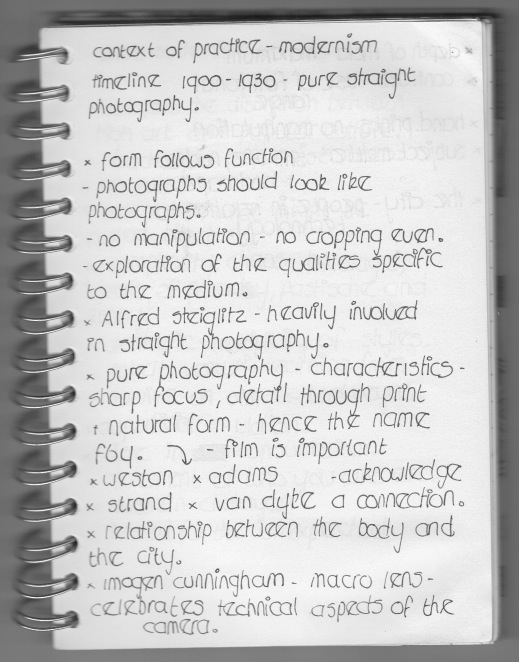 context of practice - modernism
timeline 1900-1930 - pure straight
photography.
x form follows function
- photographs should look like
photographs.
- no manipulation - no cropping even.
- exploration of the qualities specific
to the medium.
x Alfred steiglitz - heavily involved
in straight photography.
x pure photography - characteristics -
sharp focus, detail through print
+ natural form - hence the name
f64. ↴ - film is important
x weston x adams - acknowledge
x strand x van dyke a connection.
x relationship between the body and
the city.
x imogen cunningham - macro lens -
celebrates technical aspects of the
camera.